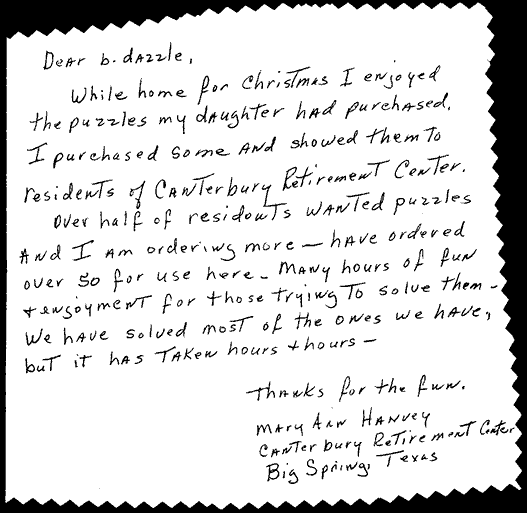 Dear b. dazzle,
While home for Christmas I enjoyed
the puzzles my daughter had purchased.
I purchased some and showed them to
residents of Canterbury Retirement Center.
Over half of residents wanted puzzles
and I am ordering more — have ordered
over 50 for use here - Many hours of fun
+ enjoyment for those trying to solve them -
We have solved most of the ones we have,
but it has taken hours + hours —
Thanks for the fun.
Mary Ann Hanvey
Canterbury Retirement Center
Big Spring, Texas